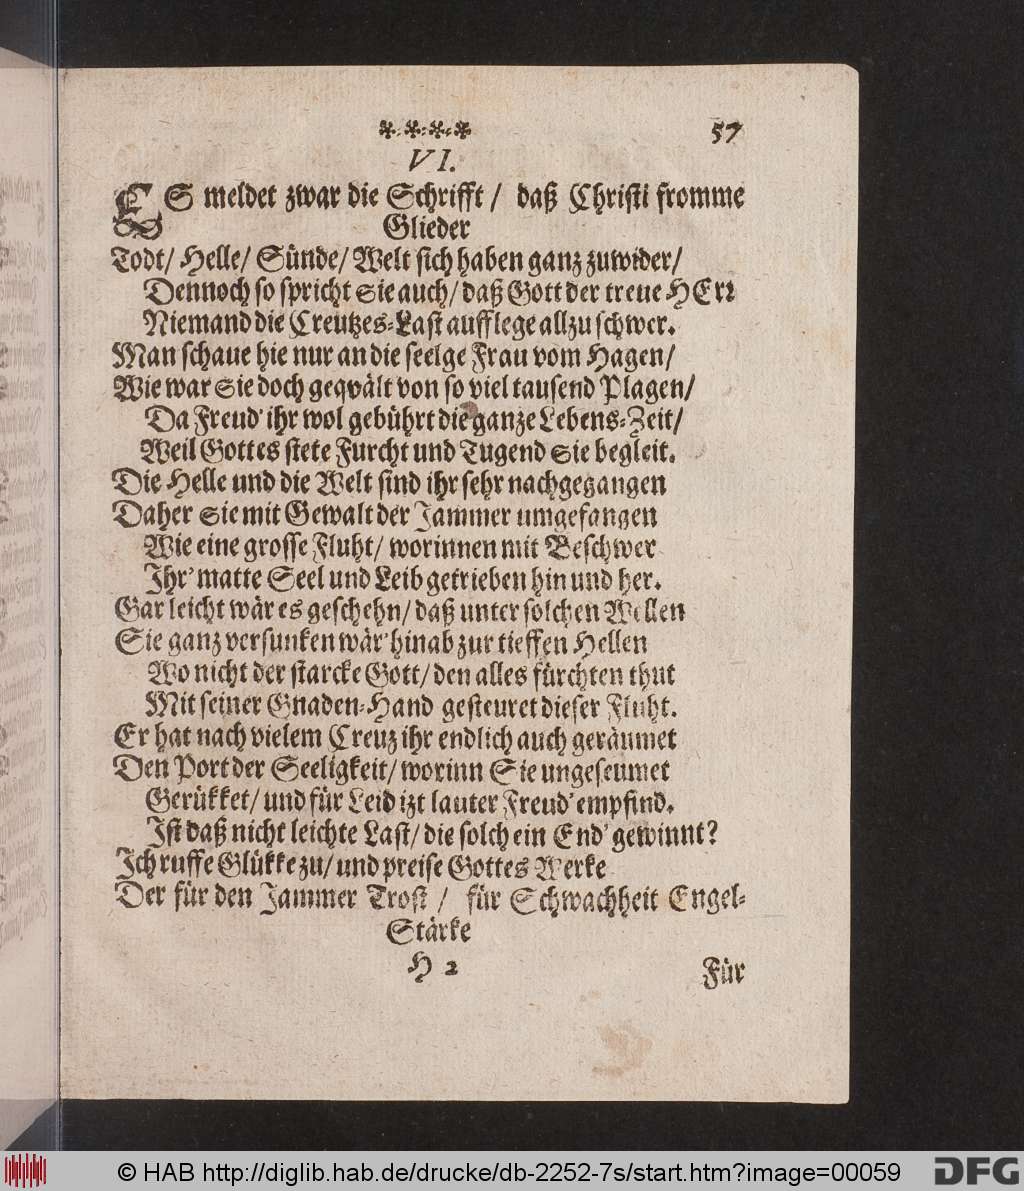 ✲.✲:✲.✲ 57
VI.
ES meldet zwar die Schrifft / daß Christi fromme
Glieder
Todt/ Helle/ Sünde/ Welt sich haben ganz zuwider/
Dennoch so spricht Sie auch/ daß Gott der treue HErr
Niemand die Creutzes-Last aufflege allzu schwer.
Man schaue hie nur an die seelge Frau vom Hagen/
Wie war Sie doch geqvält von so viel tausend Plagen/
Da Freud' ihr wol gebührt die ganze Lebens-Zeit/
Weil Gottes stete Furcht und Tugend Sie begleit.
Die Helle und die Welt sind ihr sehr nachgegangen
Daher Sie mit Gewalt der Jammer umgefangen
Wie eine grosse Fluht/ worinnen mit Beschwer
Ihr' matte Seel und Leib getrieben hin und her.
Gar leicht wär es geschehn/ daß unter solchen Wellen
Sie ganz versunken wär' hinab zur tieffen Hellen
Wo nicht der starcke Gott/ den alles fürchten thut
Mit seiner Gnaden-Hand gesteuret dieser Fluht.
Er hat nach vielem Creuz ihr endlich auch geräumet
Den Port der Seeligkeit/ worinn Sie ungeseumet
Gerükket/ und für Leid izt lauter Freud' empfind.
Ist daß nicht leichte Last/ die solch ein End' gewinnt?
Ich ruffe Glükke zu/ und preise Gottes Werke
Der für den Jammer Trost / für Schwachheit Engel-
Stärke
H 2 Für
© HAB http://diglib.hab.de/drucke/db-2252-7s/start.htm?image=00059 DFG